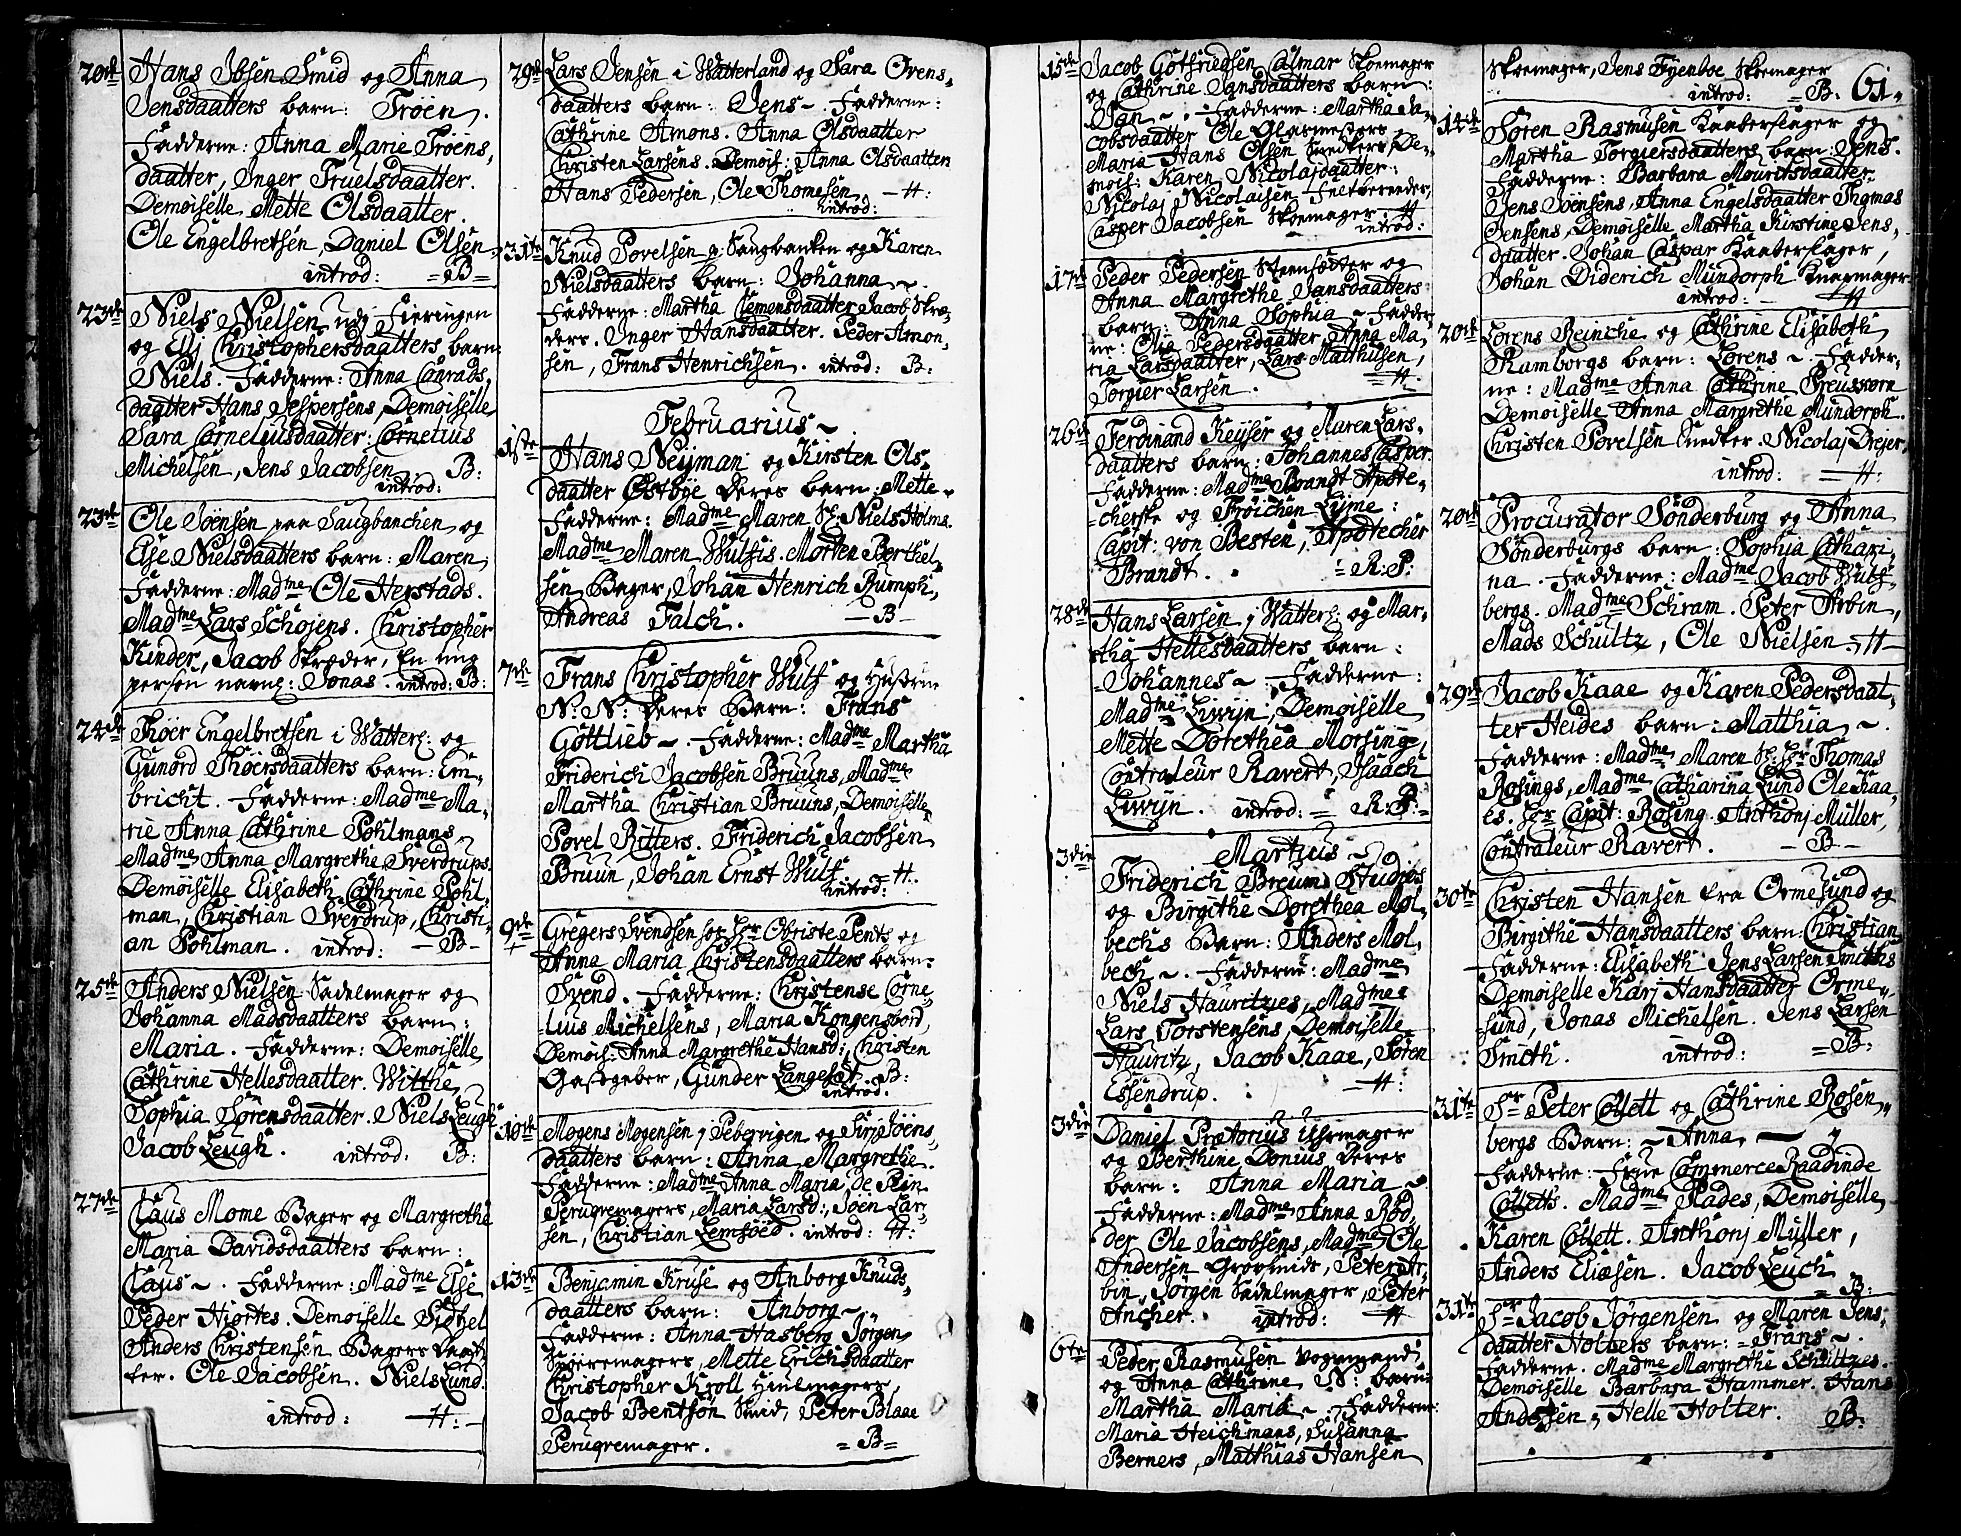 20de Hans Ibsen Smid og Anna
Jensdaatters barn: Troen.
Fadderne: Anna Marie Troens,
daatter, Inger Truelsdaatter.
Demoiselle Mette Olsdaatter.
Ole Engelbretsen, Daniel Olsen
introd: =B=
23de Niels Nielsen udj Fieringen
og Elj Christophersdaatters barn:
Niels. Fadderne: Anna Conrads,
daatter Hans Jespersens, Demoiselle
Sara Corneliusdaatter. Cornelius
Michelsen, Jens Jacobsen B:
introd:
23de Ole Joensen paa Saugbanchen og
Else Nielsdaatters barn: Maren
Fadderne: Madme Ole Herstads.
Madme Lars Schojens. Christopher
Kinder, Jacob Skræder, En ung
person navnl: Jonas. introd: B:
24de Thoer Engelbretsen i Watterl: og
Gunord Thoersdaatters barn: Em-
bricht. Fadderne: Madme Ma-
rie Anna Cathrine Pohlmans
Madme Anna Margrethe Sverdrups.
Demoiselle Elisabeth Cathrine Pohl-
man, Christian Sverdrup, Christi-
an Pohlman. introd: -B-
25de Anders Nielsen Sadelmager og
Johanna Madsdaatters barn:
Maria. Fadderne: Demoiselle
Cathrine Hellesdaatter. Witthe
Sophia Sørensdaatter. Niels Leugh
Jacob Leugh. introd: B:
27de Claus Mome Bager og Margrethe
Maria Davidsdaatters barn:
Claus ~. Fadderne: Madme Else
Peder Hiortes. Demoiselle Sidsel
Anders Christensen Bagers Daat,
ter. Ole Jacobsen. Niels Lund.
introd: -H:-
29de Lars Jensen i Watterland og Sara Ovens,
daatters barn: Jens ~. Fadderne:
Cathrine Amons. Anna Olsdaatter
Christen Larsens. Demois: Anna Olsdaatter
Hans Pedersen, Ole Thomesen -H:
introd:
31te Knud Povelsen p: Saugbanken og Karen
Nielsdaatters barn: Johanna ~.
Fadderne: Martha Clemensdaatter Jacob Skræ-
ders. Inger Hansdaatter. Peder Amon-
sen, Frans Henrichsen. introd: B:
Februarius ~
1ste Hans Neyman og Kirsten Ols-
daatter Østbye Deres barn: Mette ~
Fadderne: Madme Maren Sl: Niels Holms.
Madme Maren Wulfis. Morten Berthel-
sen Bager, Johan Henrich Rumph,
Andreas Falch. -B-
7de Frans Christopher Wulf og Hustrue
N: N: Deres Barn: Frans
Gottlieb ~. Fadderne: Madme Martha
Friderich Jacobsen Bruuns, Madme
Martha Christian Bruuns, Demoiselle
Povel Ritters. Friderich Jacobsen
Bruun, Johan Ernst Wulf. -H.
introd:
9de Gregers Svendsen hos Hr Obriste Pents og
Anna Maria Christensdaatters barn:
Svend. Fadderne: Christense Corne-
lius Michelsens, Maria Kongensbord,
Demois: Anna Margrethe Hansd:, Christen
Gastgeber, Gunder Langesæt. B:
introd:
10de Mogens Mogensen j Pebervigen og Sirj Joens,
daatters barn: Anna Margrethe.
Fadderne: Madme Anna Maria de Pein
Peruqvemagers, Maria Larsd:, Joen Lar-
sen, Christian Lemfoed. introd: H:
13de Benjamin Kruse og Anborg Knuds,
daatters barn: Anborg ~.
Fadderne: Anna Hasberg Jørgen
Sporremagers, Mette Erichsdaatter
Christopher Kroll Hiulmagers,
Jacob Bentson Smid, Peter Blaae
Peruqvemager. =B=
15de Jacob Gothfriedsen Calmar Skoemager
og Cathrine Jansdaatters barn:
Jan ~. Fadderne: Martha Ja-
cobsdaatter Ole Glasmesters,
Maria Hans Olsen Snedkers, De-
mois: Karen Nicolajdaatter:
Nicolaj Nicolaisen Feltbereder,
Casper Jacobsen Skoemager -H
introd:
17de Peder Pedersen Steenhødter og
Anna Margrethe Jansdaatters
barn: Anna Sophia ~ Fadder-
ne: Olia Pedersdaatter, Anna Ma-
ria Larsdaatter, Lars Matthiesen,
Torgier Larsen. =H.
26de Ferdinand Keyser og Maren Lars-
daatters barn: Johannes Casper.
Fadderne: Madme Brandt Apote-
cherske og Frøichen Lyme:
Capit: von Besten, Apotecher
Brandt. = R:P:
28de Hans Larsen j Watterl: og Mar-
tha Hellesdaatters barn:
Johannes ~. Fadderne:
Madme Livijn, Demoiselle
Mette Dorethea Morsing,
Contraleur Ravert, Isaach
Livijn. introd: = R:P:-
Martius ~
3die Friderich Breum Studios
og Birgithe Dorethea Mol-
bechs Barn: Anders Mol-
bech ~. Fadderne: Madme
Niels Hauritzies, Madme
Lars Torstensens, Demoiselle
Hauritz, Jacob Kaae, Søren
Essendrup. -H:
3die Daniel Prætorius Uhrmager
og Berthine Donius Deres
barn: Anna Maria ~
Fadderne: Madme Anna Rød,
der Ole Jacobsens, Madme Ole
Andersen Grovsmids, Peter Ar-
bin, Jørgen Sadelmager, Peter
Ancher. introd: H
6te Peder Rasmusen Vognmand
og Anna Cathrine N: barn:
Martha Maria ~. Fadderne:
Maria Heichmans, Susanna
Berners, Matthias Hansen
Skoemager, Jens Fyenboe Skoemager
introd: =B. 61.
14de Søren Rasmusen Kaaberslager og
Martha Torgiersdaatters barn: Jens.
Fadderne: Barbara Mouritsdaatter
Jens Joensens, Anna Engelsdaatter Thomas
Jensens, Demoiselle Martha Kirstine Jens,
daatter. Johan Caspar Kaaberslager,
Johan Diderich Mundorph Knapmager
introd: - H
20de Lorens Reinche og Cathrine Elisabeth
Ramborgs barn: Lorens ~. Fadder-
ne: Madme Anna Cathrine Preussorn
Demoiselle Anna Margrethe Mundorph.
Christen Povelsen Snedker. Nicolaj Drejer.
introd: -H:
20de Procurator Sønderburg og Anna
Sønderburgs barn: Sophia Cathari-
na. Fadderne: Madme Jacob Wulf-
bergs. Madme Schram. Peter Arbin,
Mads Schultz, Ole Nielsen -H-
29de Jacob Kaae og Karen Pedersdaat-
ter Heides barn: Matthia ~.
Fadderne: Madme Maren Sl: Hr: Thomas
Rosings, Madme Catharina Lund Ole Kaa-
es. Hr Capit: Rosing. Anthonj Müller,
Contraleur Ravert. -B-
30te Christen Hansen fra Ormesund og
Birgithe Hansdaatters barn: Christian
Fadderne: Elisabeth Jens Larsen Smiths
Demoiselle Karj Hansdaatter Orme-
sund, Jonas Michelsen. Jens Larsen
Smith. introd: =B:
31te Sr Peter Collett og Cathrine Rosen-
bergs Barn: ~ Anna ~
Fadderne: Frue Commerce Raadinde
Colletts. Madme Plades, Demoiselle
Karen Collett. Anthonj Müller,
Anders Eliæsen. Jacob Leuch
B:
31te Sr Jacob Jørgensen og Maren Jens,
daatter Holters barn: Frans ~.
Fadderne. Madme Margrethe Schultzes.
Demoiselle Barbara Hammer. Hans
Andersen, Helle Holter. B: